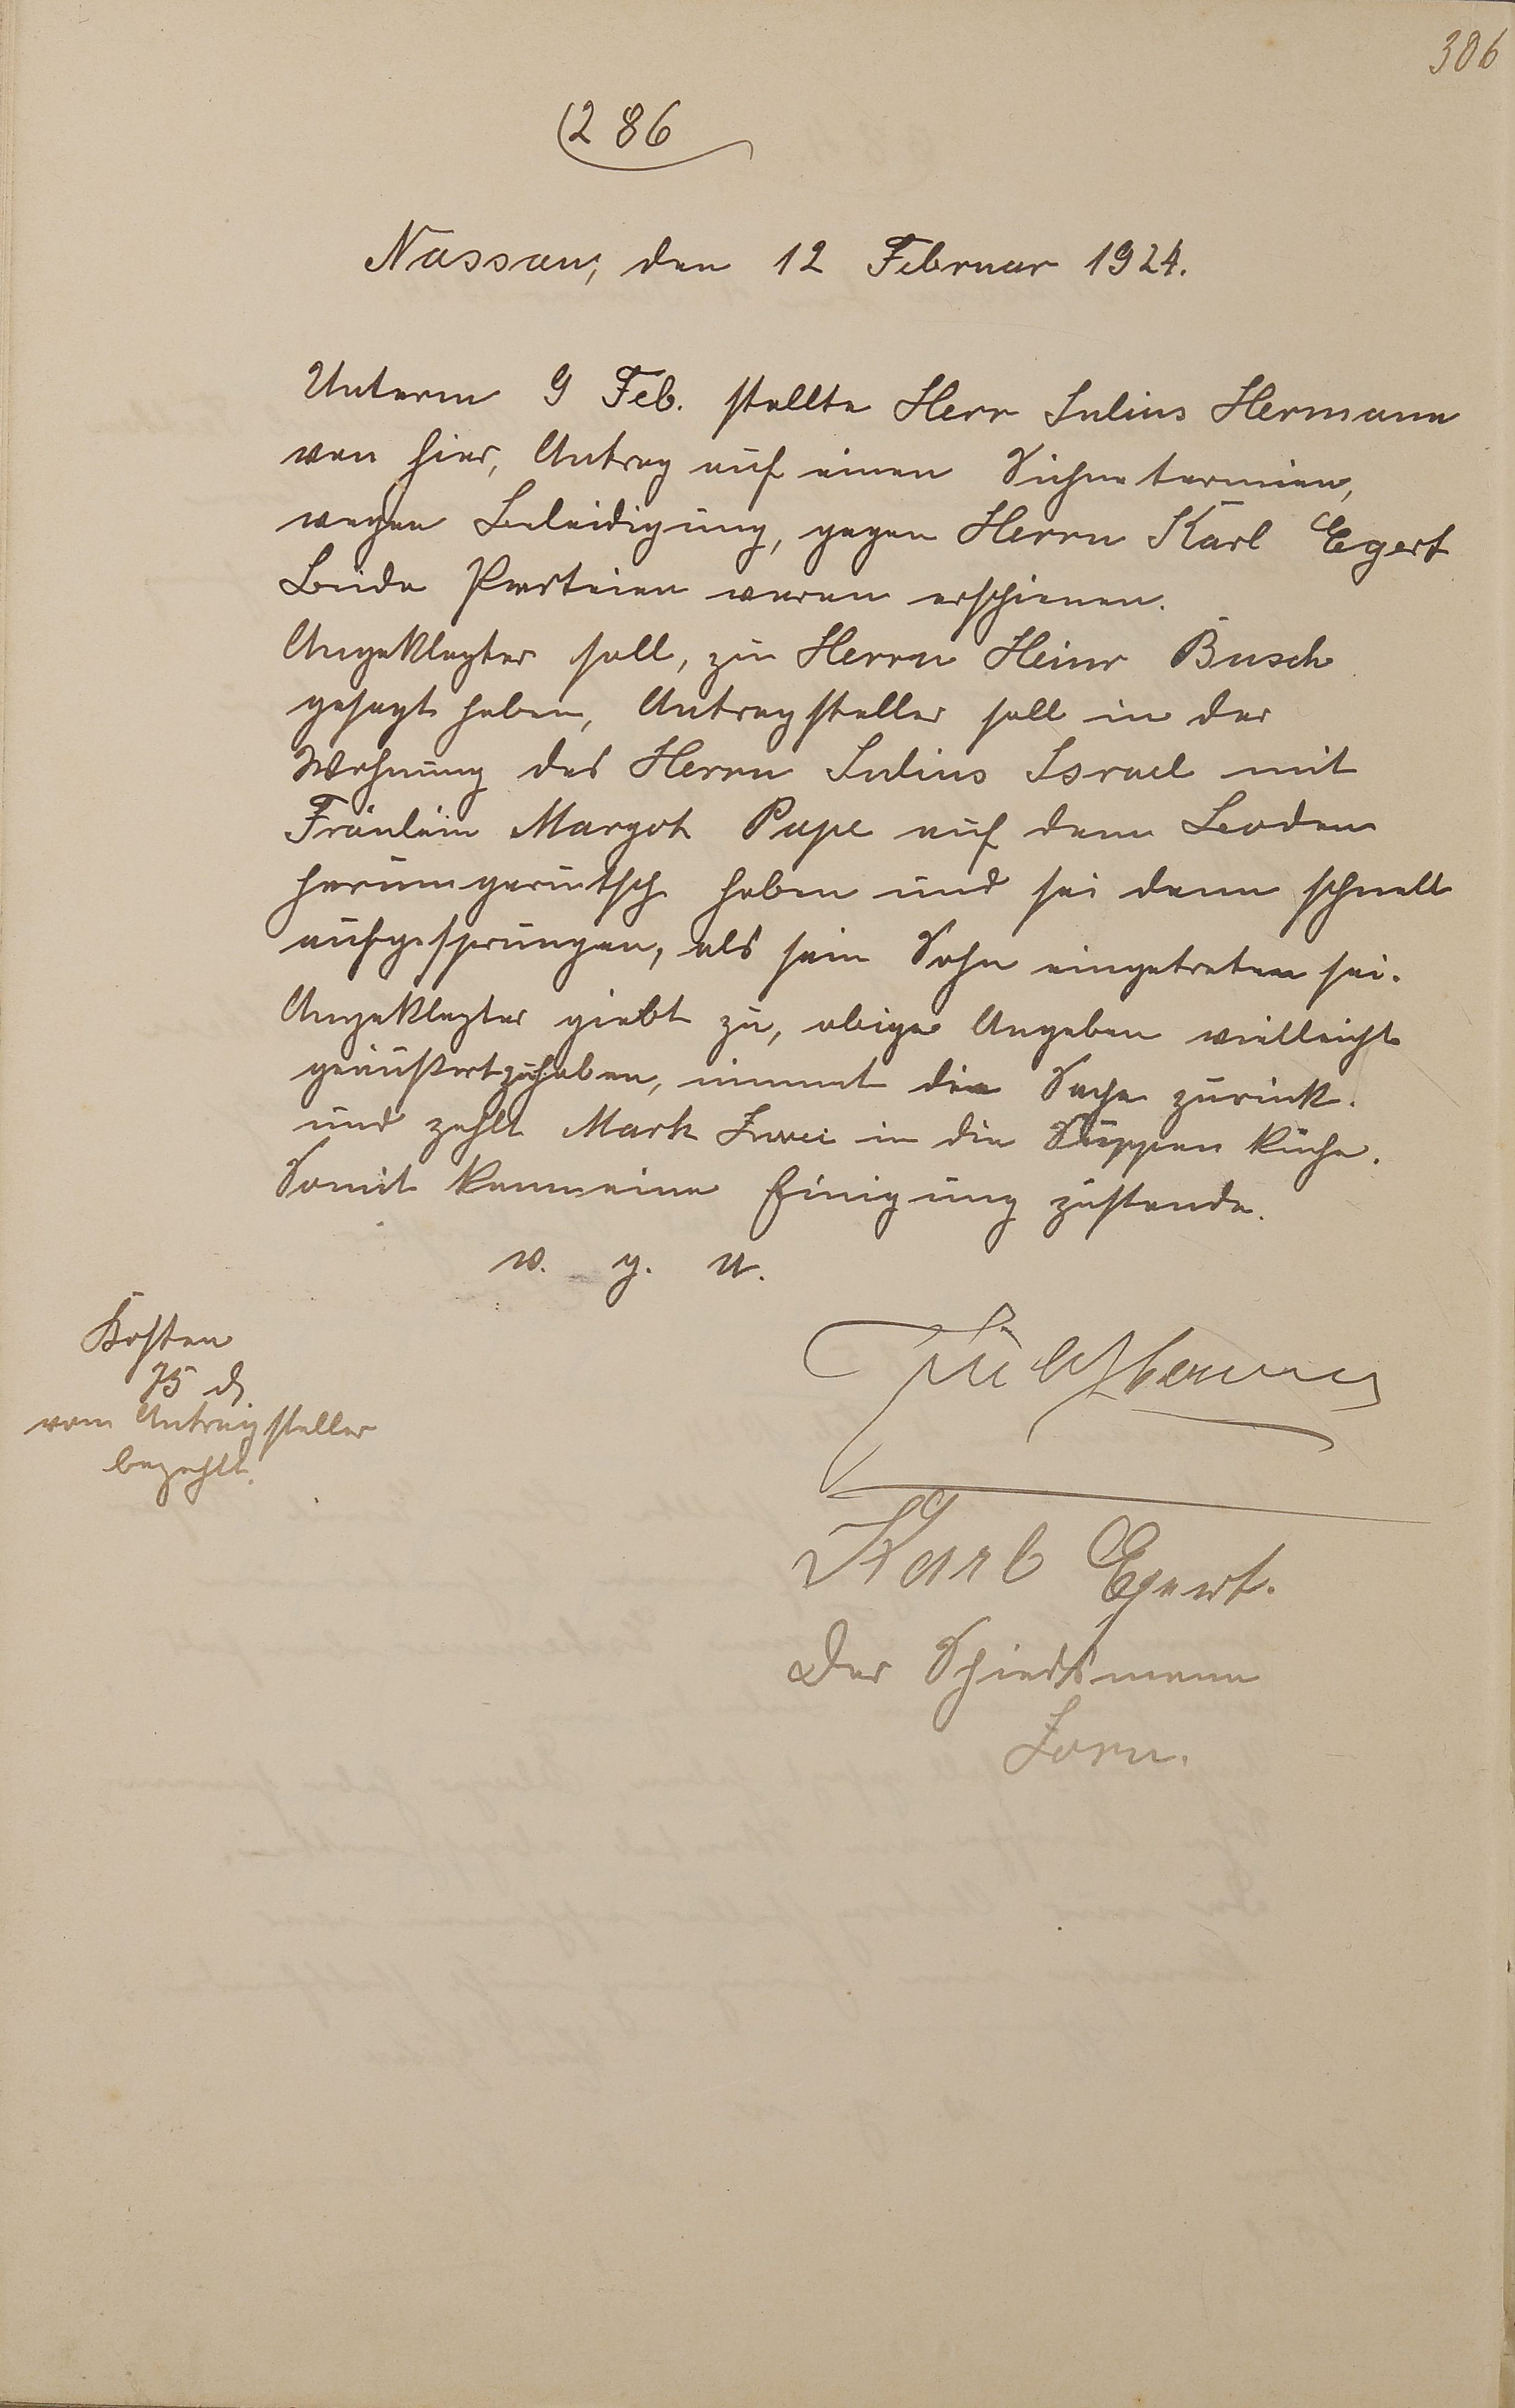 306
286
Nassau, den 12 Februar 1924.
Unterm 9 Feb. stellte Herr Julius Hermann
von hier, Antrag auf einen Sühnetermien,
wegen Beleidigung, gegen Herrn Karl Egert
Beide Parteien waren erschienen.
Angeklagter soll, zu Herrn Heinr Busch
gesagt haben, Antragsteller soll in der
Wohnung des Herrn Julius Israel mit
Fräulein Margot Pape auf dem Boden
herumgerutsch haben und sei dann schnell
aufgesprungen, als sein Sohn eingetreten sei.
Angeklagter giebt zu, obige Angaben vielleicht
geäußert zu haben, nimmt die Sache zurück.
und zahlt Mark Zwei in die Suppen küche.
Somit kam eine Einigung zustande.
v. g. u.
Kosten
75 ₰
vom Antragsteller
bezahlt.
Karl Egert.
Der Schiedsmann
Zorn.